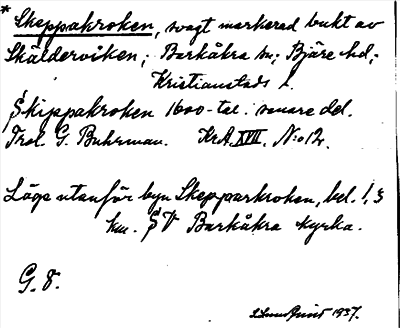 * Skeppakroken, svagt markerad bukt av
Skälderviken; Barkåkra sn; Bjäre hd;
Kristianstads l.
Skippakroken 1600-tal. senare del.
Trol. G. Buhrman. KrA. XVII. N:o 12.
Läge utanför byn Skepparkroken, bel. 1,3
km. SV Barkåkra kyrka.
G. 8.
1937.